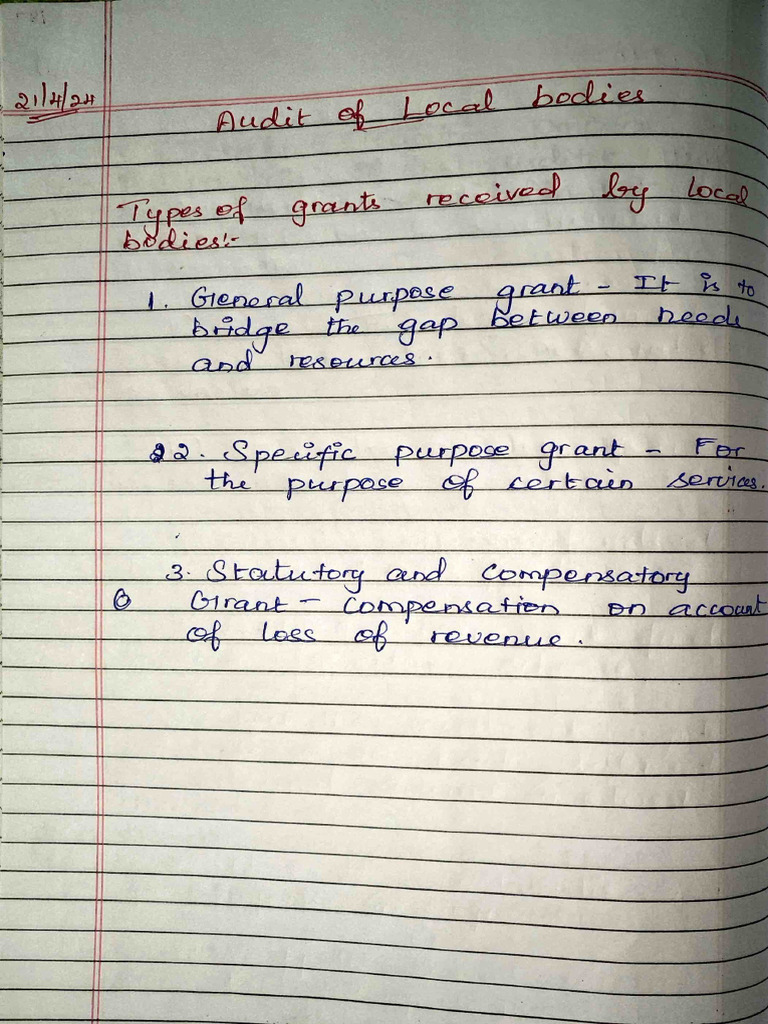 21/4/24
Audit of Local bodies
Types of grants received by local
bodies:-
1. General purpose grant - It is to
bridge the gap between needs
and resources.
2. Specific purpose grant - For
the purpose of certain services.
3. Statutory and compensatory
Grant - compensation on account
of loss of revenue.